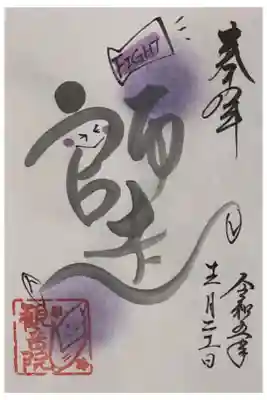 奉拝
FIGHT
師走
令和五年
十二月
觀音院